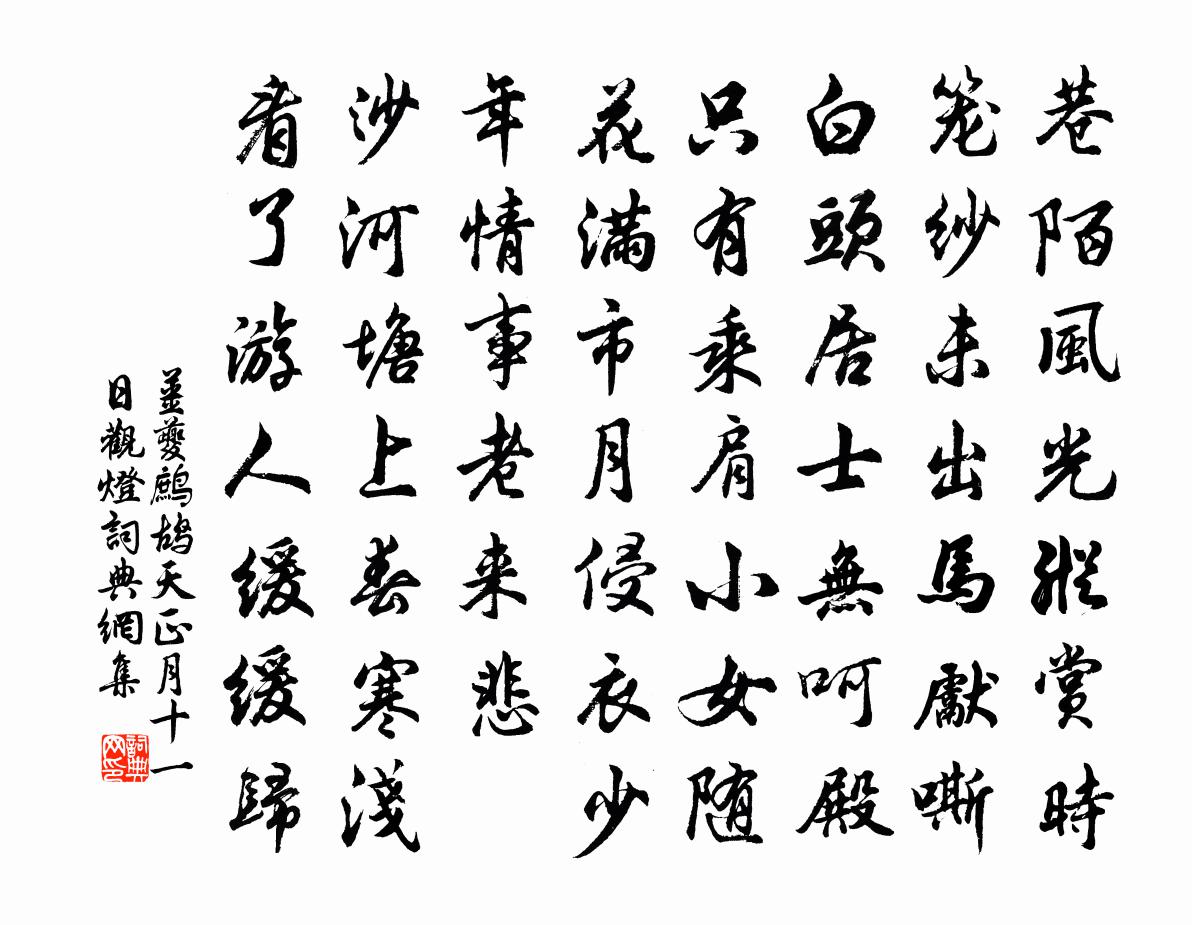 巷陌風光縱賞時
笼紗未出馬獻嘶
白頭居士無呵殿
只有乘肩小女随
花滿市月侵衣少
年情事老来悲
沙河塘上春寒淺
看了游人缓缓歸
姜夔鷓鴣天正月十一
日觀燈詞典網集
詞典網印